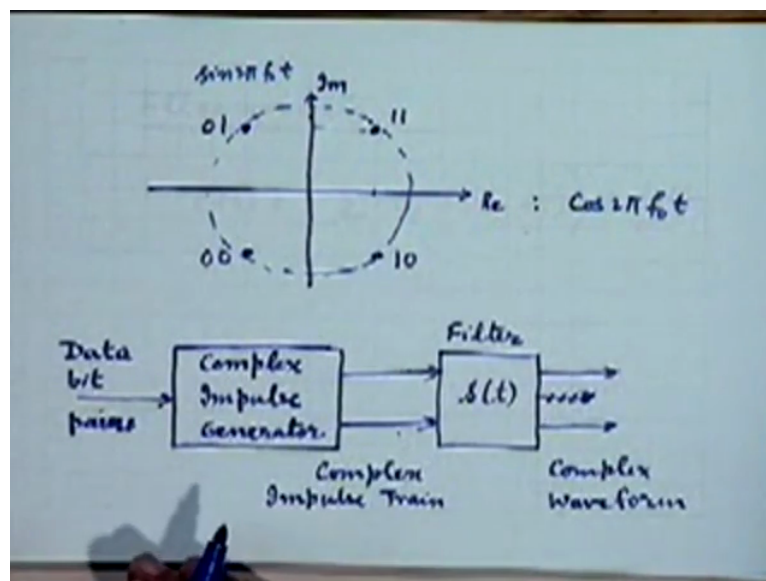 sin 2π f₀ t
Im
01
11
Re : Cos 2π f₀ t
00
10
Data
bit
pairs
Complex
Impulse
Generator
Filter
s(t)
Complex
Impulse Train
Complex
Waveform